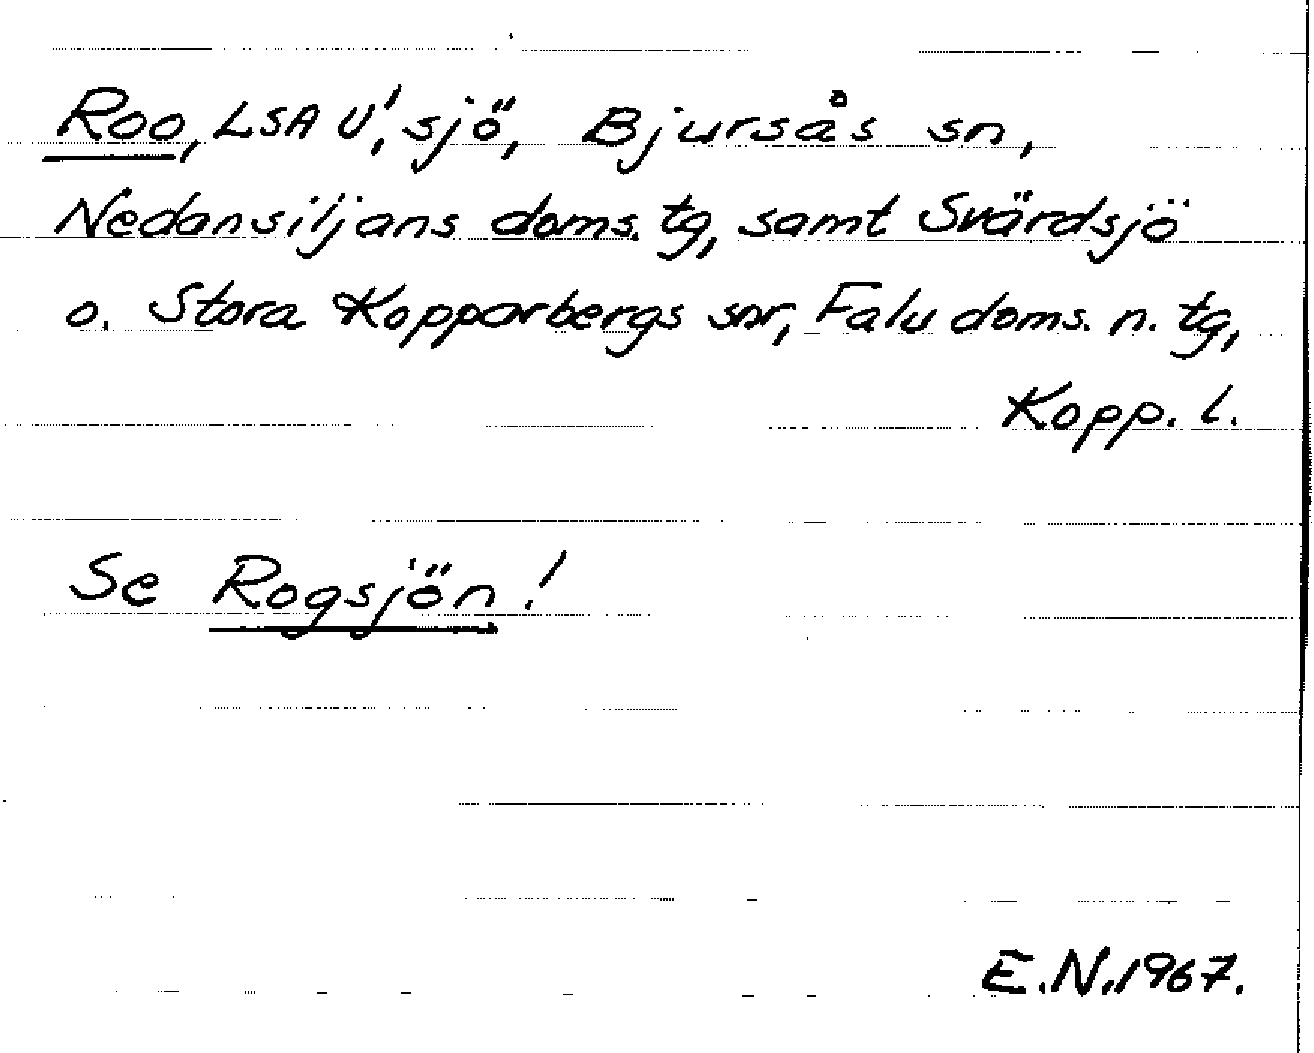 Roo, LSA U', sjö, Bjursås sn,
Nedansiljans doms. tg, samt Svärdsjö
o. Stora Kopparbergs snr, Falu doms. n. tg,
Kopp. l.
Se Rogsjön!
E.N.1967.